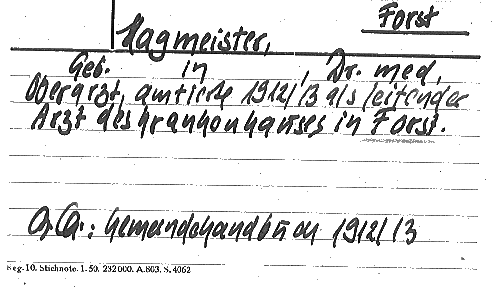 Forst
Hagmeister,
Geb. in , Dr. med,
Oberarzt, amtierte 1912/13 als leitender
Arzt des Krankenhauses in Forst.
Qu.: Gemeindehandbuch 1912/13
Reg-10. Stichnote. 1-50. 232000. A.803. S. 4062